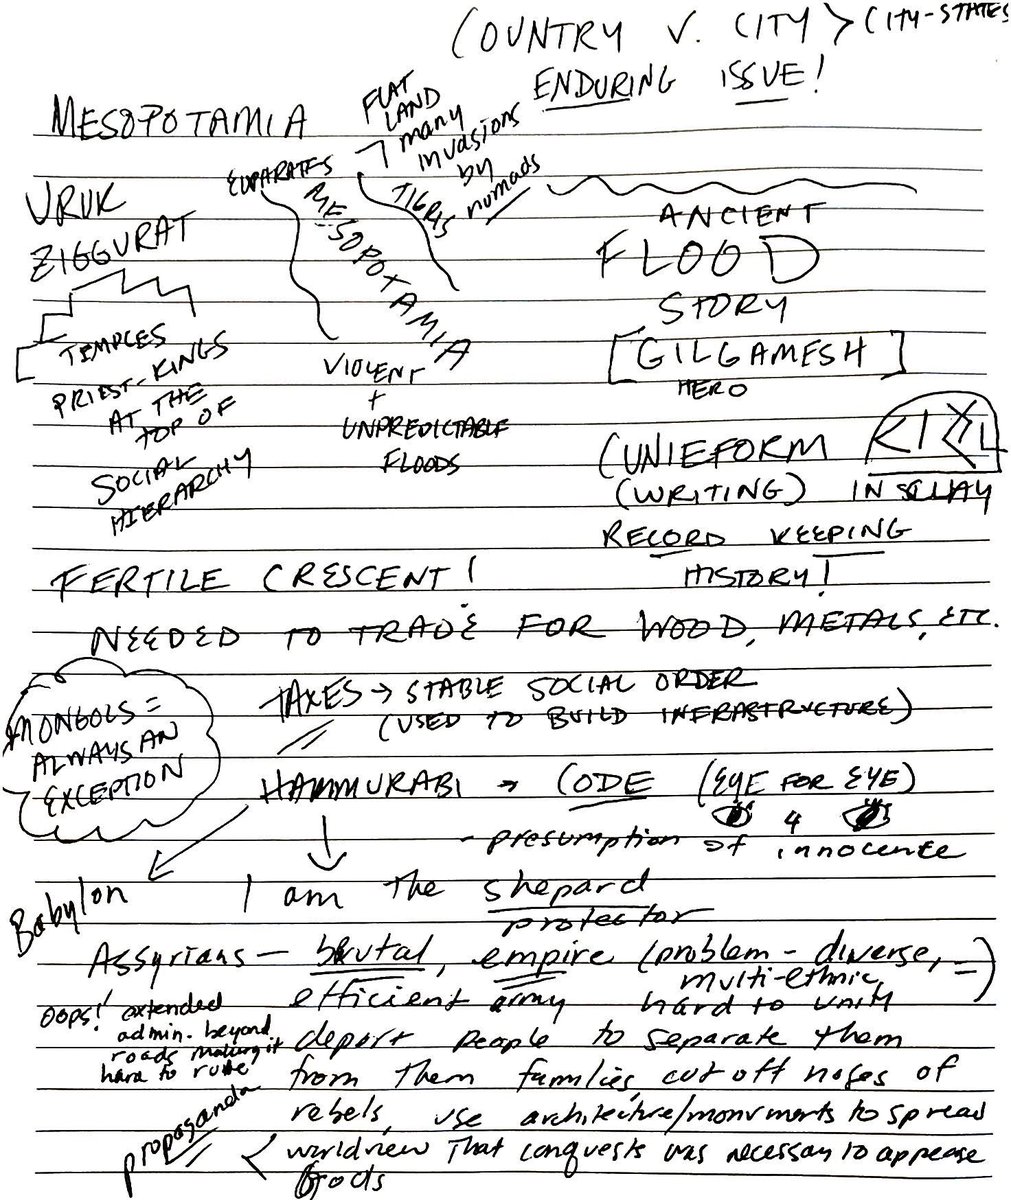 COUNTRY V. CITY > CITY-STATES
ENDURING ISSUE!
MESOPOTAMIA
FLAT
LAND
many
invasions
by
nomads
EUPARATES
MESOPOTAMIA
TIGRIS
URUK
ZIGGURAT
TEMPLES
PRIEST-KINGS
AT THE
TOP OF
SOCIAL
HIERARCHY
VIOLENT
+
UNPREDICTABLE
FLOODS
ANCIENT
FLOOD
STORY
[GILGAMESH]
HERO
CUNIEFORM
(WRITING) IN CLAY
RECORD KEEPING
HISTORY!
FERTILE CRESCENT!
NEEDED TO TRADE FOR WOOD, METALS, ETC.
MONGOLS =
ALWAYS AN
EXCEPTION
TAXES → STABLE SOCIAL ORDER
(USED TO BUILD INFRASTRUCTURE)
HAMMURABI → CODE (EYE FOR EYE)
- presumption of innocence
Babylon
I am the shepard
protector
Assyrians - brutal, empire (problem - diverse, -)
multi-ethnic,
efficient army hard to unify
Oops! extended
admin. beyond
roads making it
hard to rule
deport people to separate them
from them families, cut off noses of
rebels, use architecture/monuments to spread
propaganda < worldview that conquests was necessary to appease
Gods